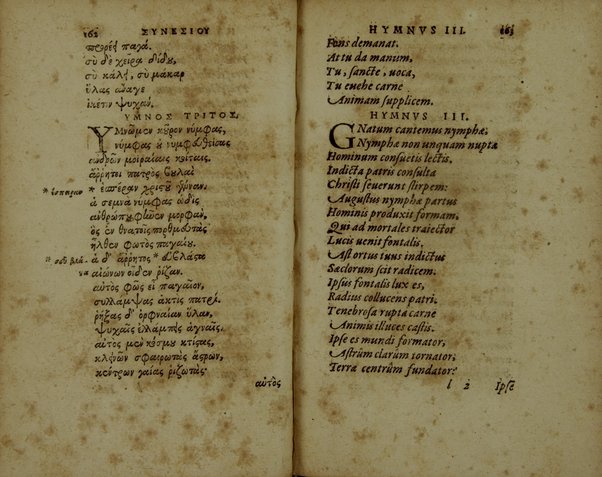 162 ΣΥΝΕΣΙΟΥ
σὺ δὲ χεῖρα δίδου,
σὺ κάλει, σὺ μάκαρ
ὕλας ἄναγε
ἱκέτιν ψυχάν.
ΥΜΝΟΣ ΤΡΙΤΟΣ.
Υμνῶμεν κοῦρον νύμφας,
νύμφας οὐ νυμφευθείσας
ἀνδρῶν μοιραίαις κοίταις.
ἄῤῥητοι πατρὸς βουλαὶ
* ἔσπειραν χριστοῦ γένναν.
ἁ σεμνὰ νύμφας ὠδὶς
ἀνθρώπου φῆνεν μορφὰν,
ὃς ἐν θνατοῖς πορθμευτὰς
ἦλθεν φωτὸς παγαίου.
ἁ δ' ἄῤῥητος * βλάστα
αἰώνων οἶδεν ῥίζαν.
αὐτὸς φῶς εἶ παγαῖον,
συλλάμψας ἀκτὶς πατρὶ.
ῥήξας δ' ὀρφναίαν ὕλαν,
ψυχαῖς ἐλλάμπεις ἁγναῖς.
αὐτὸς μὲν κόσμου κτίστας,
κλεινῶν σφαιρωτὰς ἄστρων,
κέντρων γαίας ῥιζωτάς·
αὐτὸς
HYMNVS III. 163
Fons demanat.
At tu da manum,
Tu, sancte, uoca,
Tu euehe carne
Animam supplicem.
HYMNVS III.
GNatum cantemus nymphæ,
Nymphæ non unquam nuptæ
Hominum consuetis lectis.
Indicta patris consulta
Christi seuerunt stirpem:
Augustus nymphæ partus
Hominis produxit formam,
Qui ad mortales traiector
Lucis uenit fontalis.
Ast ortus tuus indictus
Sæclorum scit radicem.
Ipsus fontalis lux es,
Radius collucens patri.
Tenebrosa rupta carne
Animis illuces castis.
Ipse es mundi formator,
Astrûm clarûm tornator,
Terræ centrûm fundator:
l 2 Ipse